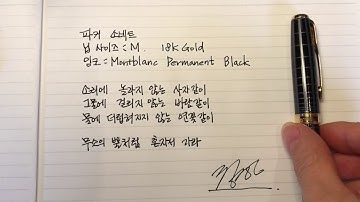 파커 소네트
닙 사이즈 : M. 18K Gold
잉크 : Montblanc Permanent Black
소리에 놀라지 않는 사자같이
그물에 걸리지 않는 바람같이
물에 더럽혀지지 않는 연꽃같이
무소의 뿔처럼 혼자서 가라